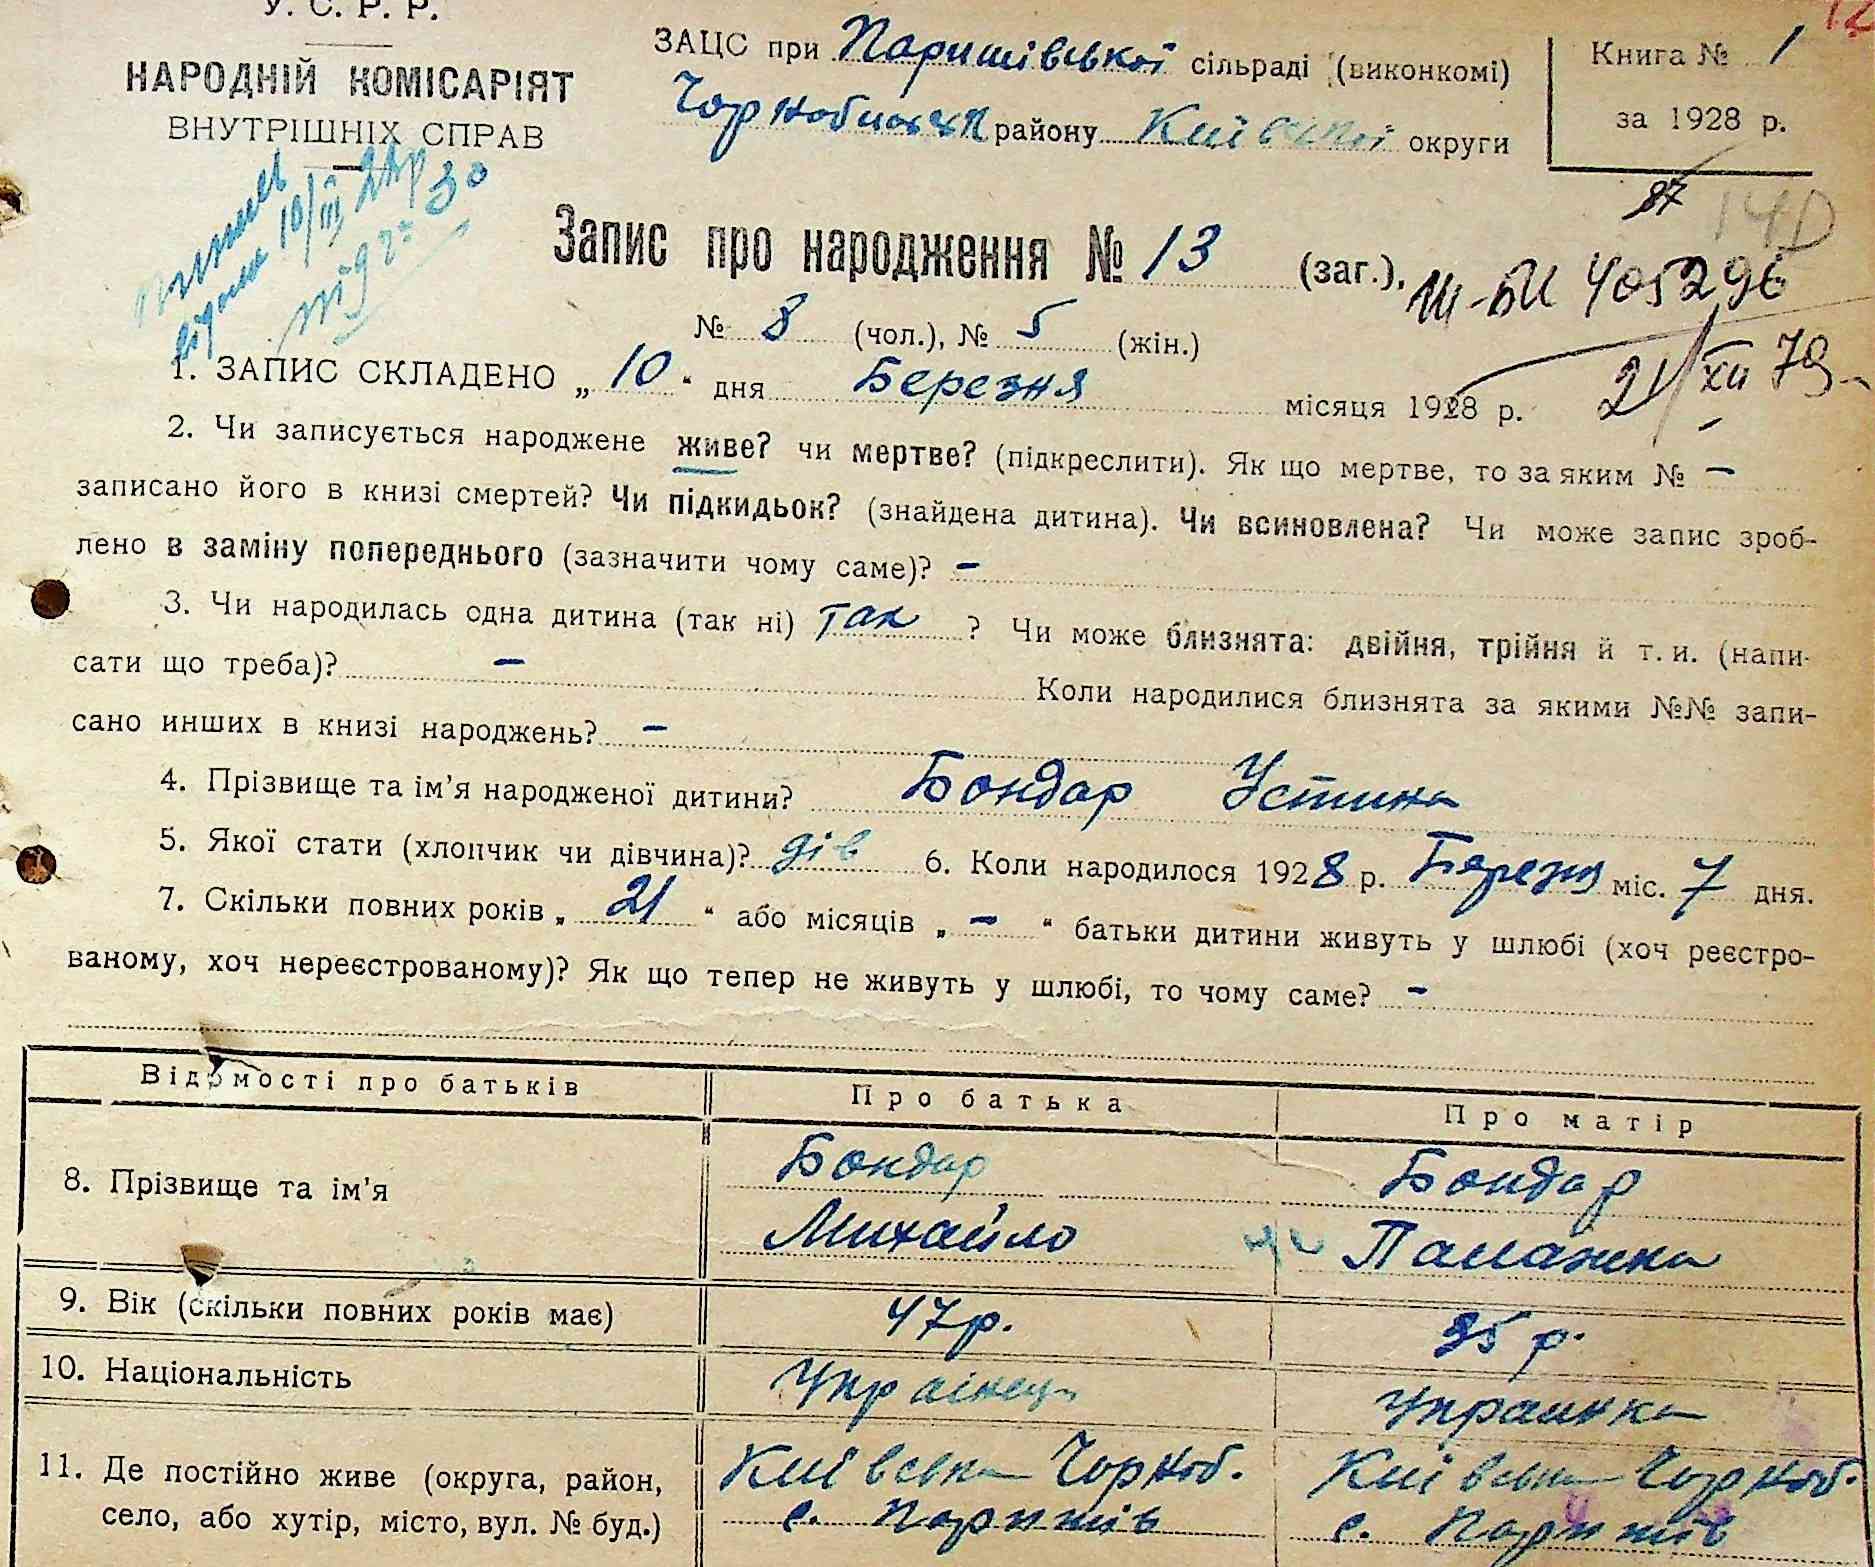 У. С. Р. Р.
НАРОДНІЙ КОМІСАРІЯТ
ВНУТРІШНІХ СПРАВ
ЗАЦС при Паришівської сільраді (виконкомі)
району Київської округи
Книга № 1
за 1928 р.
Запис про народження № 13 (заг.),
Ш-БИ 405296
№ 8 (чол.), № 5 (жін.)
21/XII 79
1. ЗАПИС СКЛАДЕНО „ 10 “ дня Березня місяця 1928 р.
2. Чи записується народжене живе? чи мертве? (підкреслити). Як що мертве, то за яким № –
записано його в книзі смертей? Чи підкидьок? (знайдена дитина). Чи всиновлена? Чи може запис зроб-
лено в заміну попереднього (зазначити чому саме)? –
3. Чи народилась одна дитина (так ні) так ? Чи може близнята: двійня, трійня й т. и. (напи-
сати що треба)? – Коли народилися близнята за якими №№ запи-
сано инших в книзі народжень? –
4. Прізвище та ім'я народженої дитини? Бондар Устина
5. Якої стати (хлопчик чи дівчина)? дів 6. Коли народилося 1928 р. Березня міс. 7 дня.
7. Скільки повних років „ 21 “ або місяців „ – “ батьки дитини живуть у шлюбі (хоч реєстро-
ваному, хоч нереєстрованому)? Як що тепер не живуть у шлюбі, то чому саме? –
Відомості про батьків Про батька Про матір
8. Прізвище та ім'я Бондар Бондар
Михайло Палажка
9. Вік (скільки повних років має) 47 р. 35 р.
10. Національність Українець Украинка
11. Де постійно живе (округа, район, Київська Чорноб. Київська Чорноб.
село, або хутір, місто, вул. № буд.) с. Паришів с. Паришів